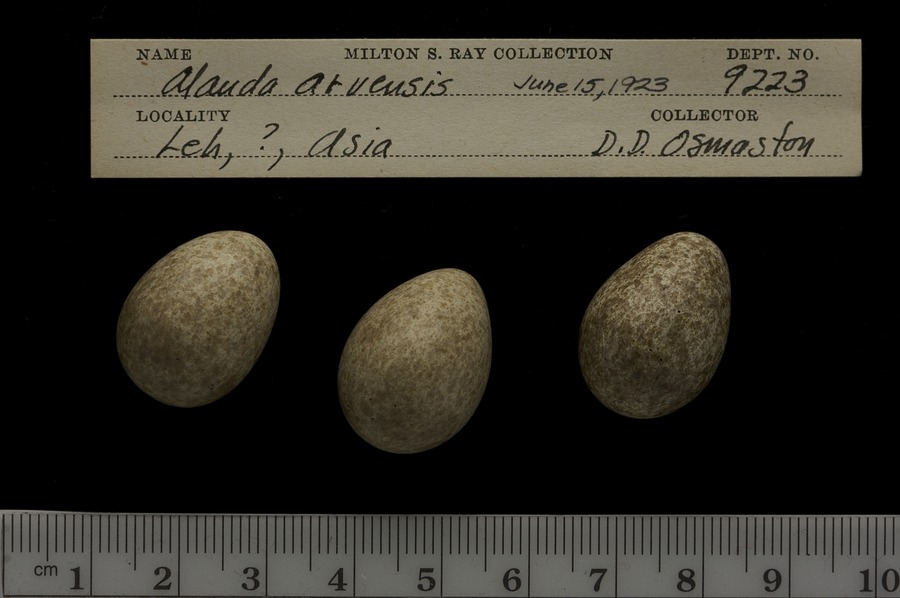 NAME MILTON S. RAY COLLECTION DEPT. NO.
Alauda arvensis June 15, 1923 9223
LOCALITY COLLECTOR
Leh, ?, Asia D.D. Osmaston
cm 1 2 3 4 5 6 7 8 9 10